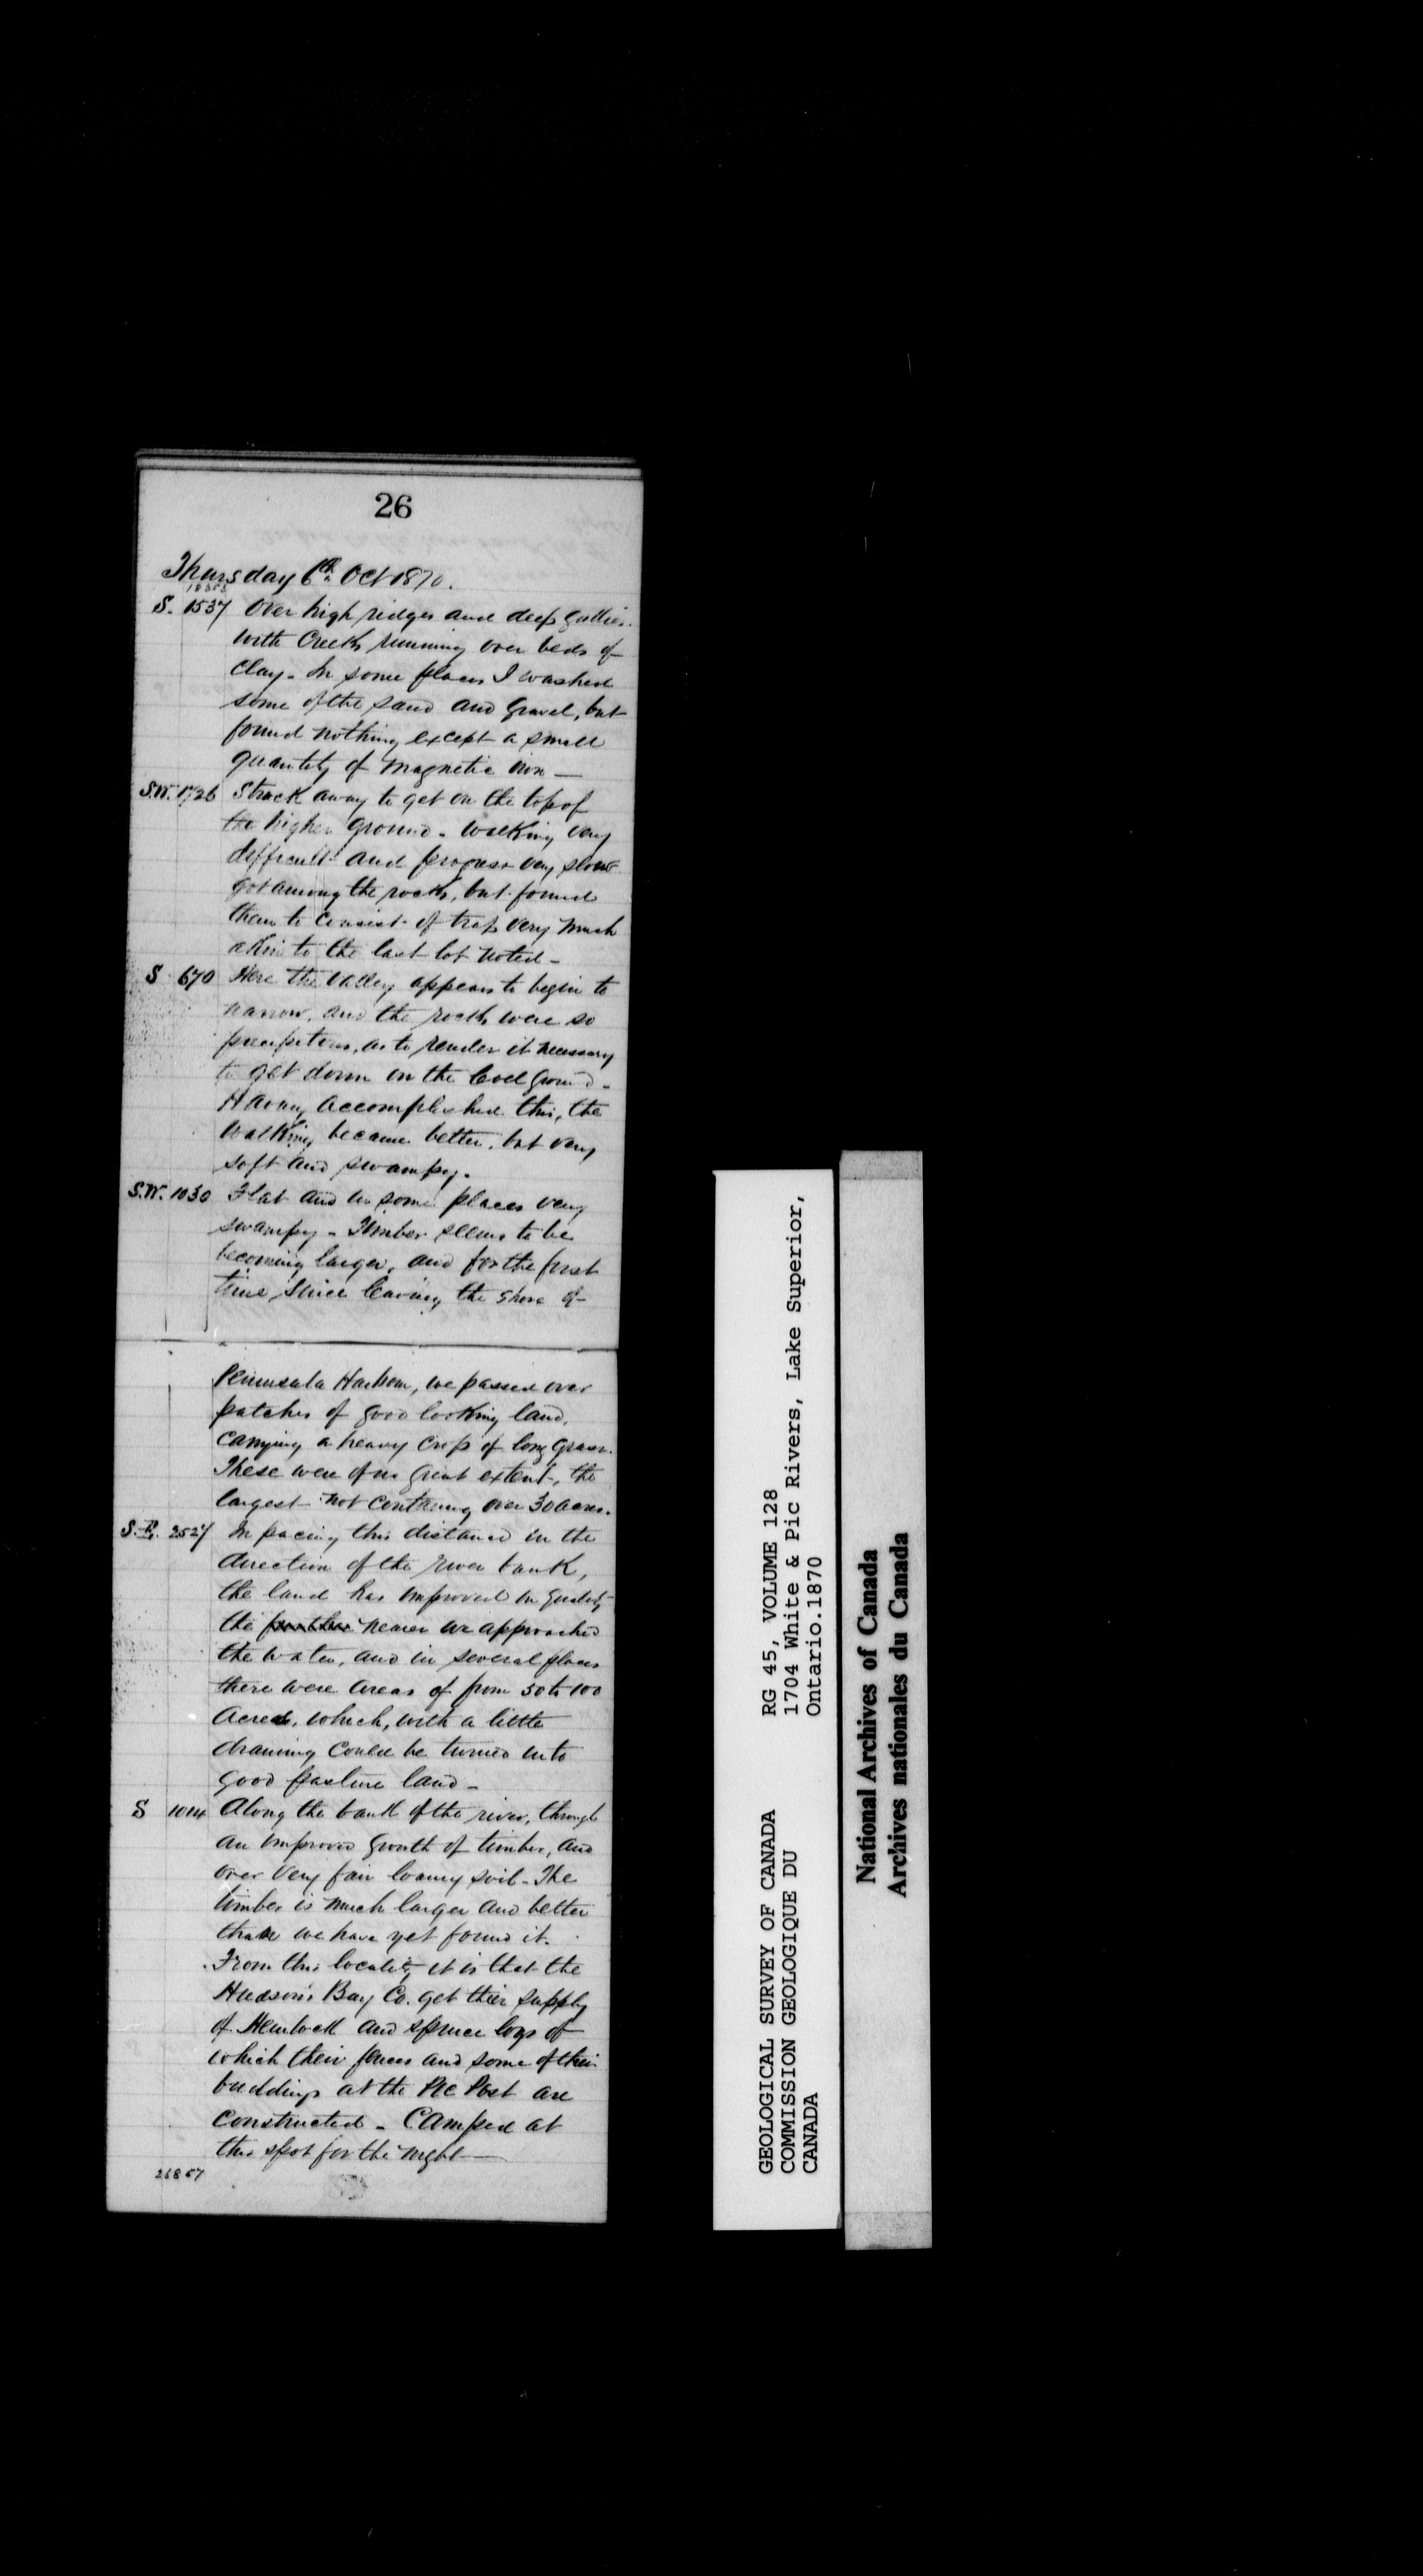 26
Thursday 6th Oct 1870.
18353
S. 1537 Over high ridges and deep gullies.
with Creeks running over beds of
clay - In some places I washed
some of the sand and gravel, but
found nothing except a small
quantity of magnetic iron —
S.W. 1726 Struck away to get on the top of
the higher ground - walking very
difficult and progress very slow
got among the rocks, but found
them to consist of trap very much
akin to the last lot noted -
S 670 Here the valley appears to begin to
narrow, and the rocks were so
precipitous, as to render it necessary
to get down on the level ground -
Having accomplished this, the
walking became better, but very
soft and swampy.
S.W. 1030 Flat and in some places very
swampy - Timber seems to be
becoming larger, and for the first
time since leaving the shore of
Peninsula Harbour, we passed over
patches of good looking land,
carrying a heavy crop of long grass.
These were of no great extent, the
largest not containing over 30 acres.
S.E. 2527 In pacing this distance in the
direction of the river bank,
the land has improved in quality
the further nearer we approached
the water, and in several places
there were areas of from 50 to 100
Acres, which, with a little
draining could be turned into
good pasture land -
S 1014 Along the bank of the river, through
an improved growth of timber, and
over very fair loamy soil - The
timber is much larger and better
than we have yet found it.
From this locality it is that the
Hudson's Bay Co. get their supply
of Hemlock and spruce logs of
which their fences and some of their
buildings at the Pic Post are
constructed - Camped at
this spot for the night —
26857
GEOLOGICAL SURVEY OF CANADA
COMMISSION GEOLOGIQUE DU
CANADA
RG 45, VOLUME 128
1704 White & Pic Rivers, Lake Superior,
Ontario.1870
National Archives of Canada
Archives nationales du Canada